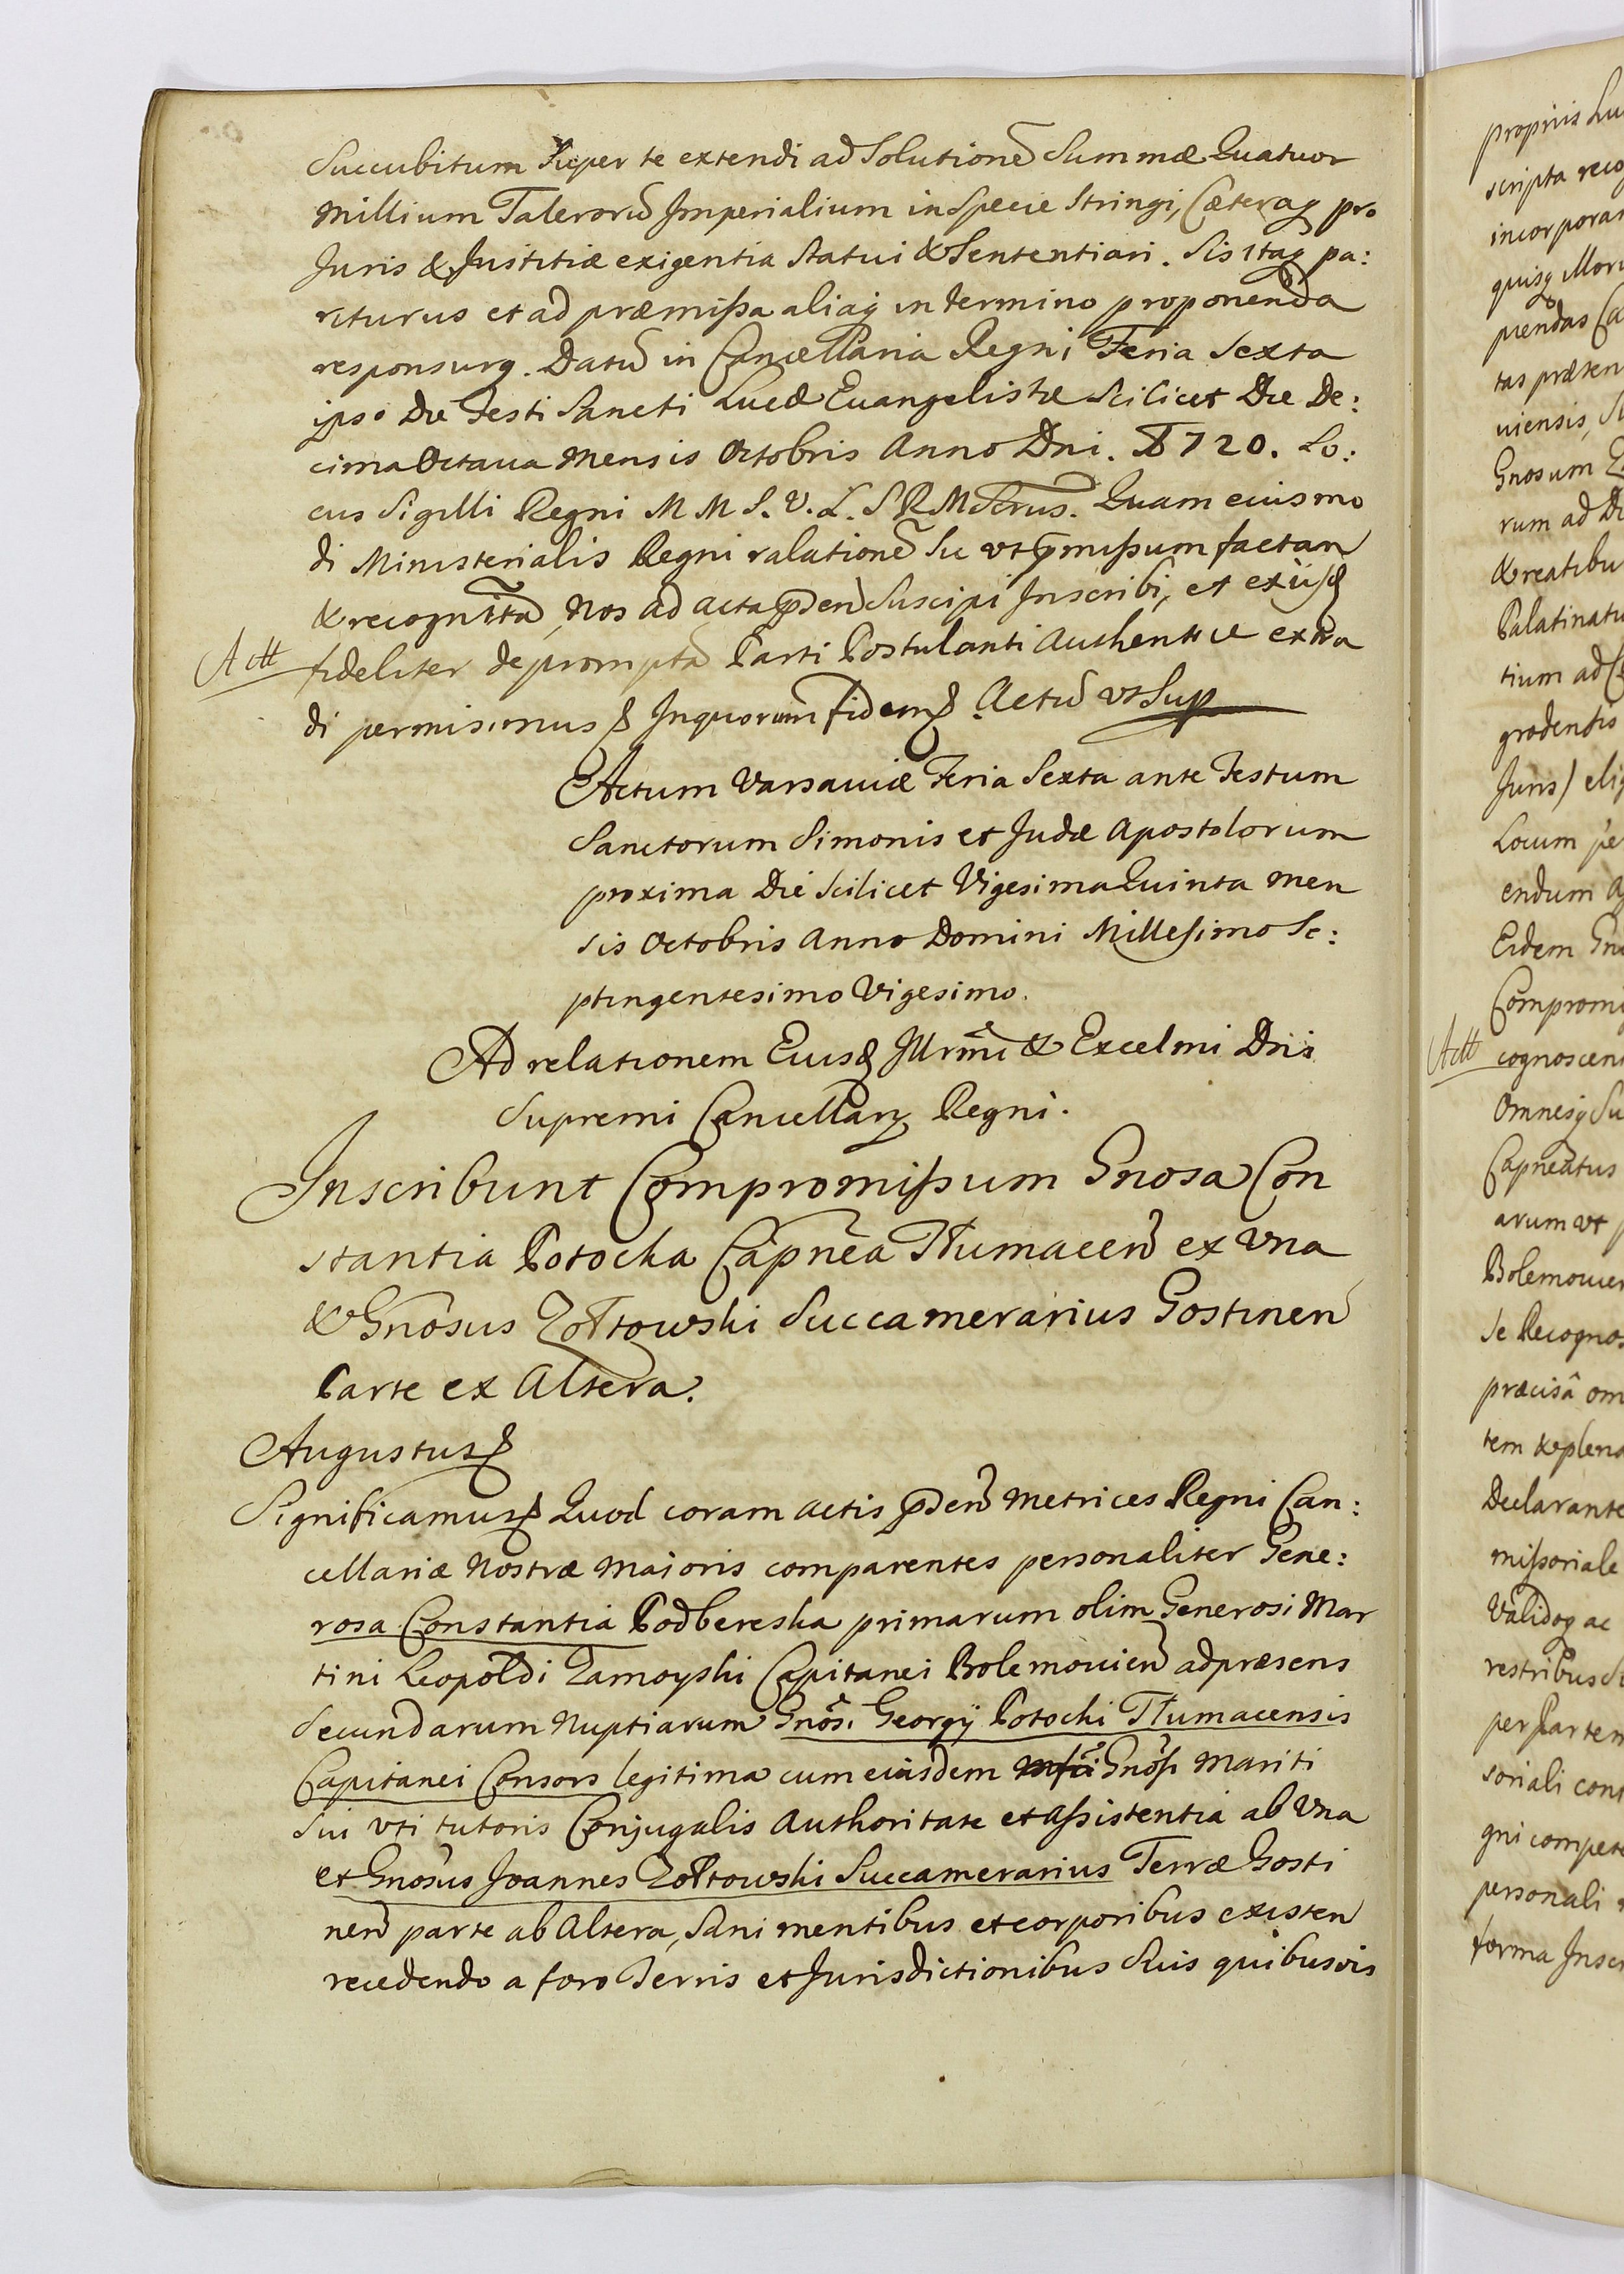 Succubitum super te extendi ad Solutionẽ Summæ Quatuor
Millium Talerorũ Imperialium in Specie Stringi, Cæteraq pro
Juris & Justitiæ exigentia Statui & Sententiari. Sis itaq pa:
riturus et ad præmissa aliaq in termino proponenda
responsurq. Datũ in Cancellaria Regni Feria Sexta
ipso Die Festi Sancti Lucæ Euangelistæ Scilicet Die De:
cima Octaua Mensis Octobris Anno Dni. 1720. Lo:
cus Sigilli Regni M M S. V. L. S R M Scrus. Quam eiusmo
di Ministerialis Regni ralationẽ Su vt p̃missum factam
& recognitã, Nos ad acta p̃den Suscipi Inscribi, et ex iis
Act
fideliter depromptã Parti Postulanti Authentice extra
di permisimus Inquorum fidem. Actũ vt Sup
Actum Varsauiæ Feria Sexta ante Festum
Sanctorum Simonis et Judæ Apostolorum
proxima Die Scilicet Vigesima Quinta Men
sis Octobris Anno Domini Millesimo Se:
ptingentesimo Vigesimo.
Ad relationem Eiusd Illrmi & Excelmi Dni
Supremi Cancellarÿ Regni.
Inscribunt Compromissum Gnosa Con
stantia Potocka Capnea Tłumacen ex Vna
& Gnosus Zołtowski Succamerarius Gostinen
Parte ex Altera.
Augustus
Significamus Quod coram actis p̃den Metrices Regni Can:
cellariæ Nostræ Maioris comparentes personaliter Gene:
rosa Constantia Podbereska primarum olim Generosi Mar
tini Leopoldi Zamoyski Capitanei Bolemouien ad præsens
Secundarum Nuptiarum Gnosi Georgÿ Potocki Tłumacensis
Capitanei Consors legitima cum eiusdem Gnosi Mariti
Sui vti tutoris Conjugalis Authoritate et assistentia ab Vna
et Gnosus Joannes Zołtowski Succamerarius Terræ Gosti
nen parte ab Altera, Sani mentibus et corporibus existen
recedendo a foro Terris et Jurisdictionibus Suis quibusvis
scripta
quisq
Gnosum
rum ad
Locum
endum
Eidem
Act
Omnesq
Capneatus
arum vt
præcisâ
tem & plena
Validoq ac
personali
forma